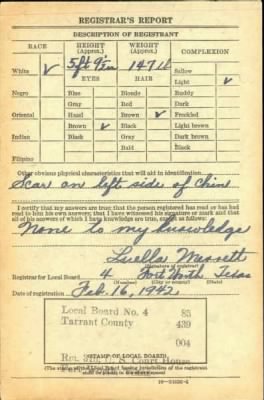 REGISTRAR'S REPORT
DESCRIPTION OF REGISTRANT
RACE HEIGHT (Approx.) WEIGHT (Approx.) COMPLEXION
White ✓ 5 ft 9 in 147 lb Sallow
EYES HAIR Light ✓
Negro Blue Blonde Ruddy
Gray Red Dark
Oriental Hazel Brown ✓ Freckled
Brown ✓ Black Light brown
Indian Black Gray Dark brown
Bald Black
Filipino
Other obvious physical characteristics that will aid in identification
Scar on left side of Chin
I certify that my answers are true; that the person registered has read or has had
read to him his own answers; that I have witnessed his signature or mark and that
all of his answers of which I have knowledge are true, except as follows:
None to my knowledge
Luella
(Signature of registrar)
Registrar for Local Board 4 Fort Worth Texas
(Number) (City or county) (State)
Date of registration Feb. 16, 1942
Local Board No. 4 85
Tarrant County 439
004
U. S. Court House
(STAMP OF LOCAL BOARD)
(The stamp of the Local Board having jurisdiction of the registrant
shall be placed in the above space.)